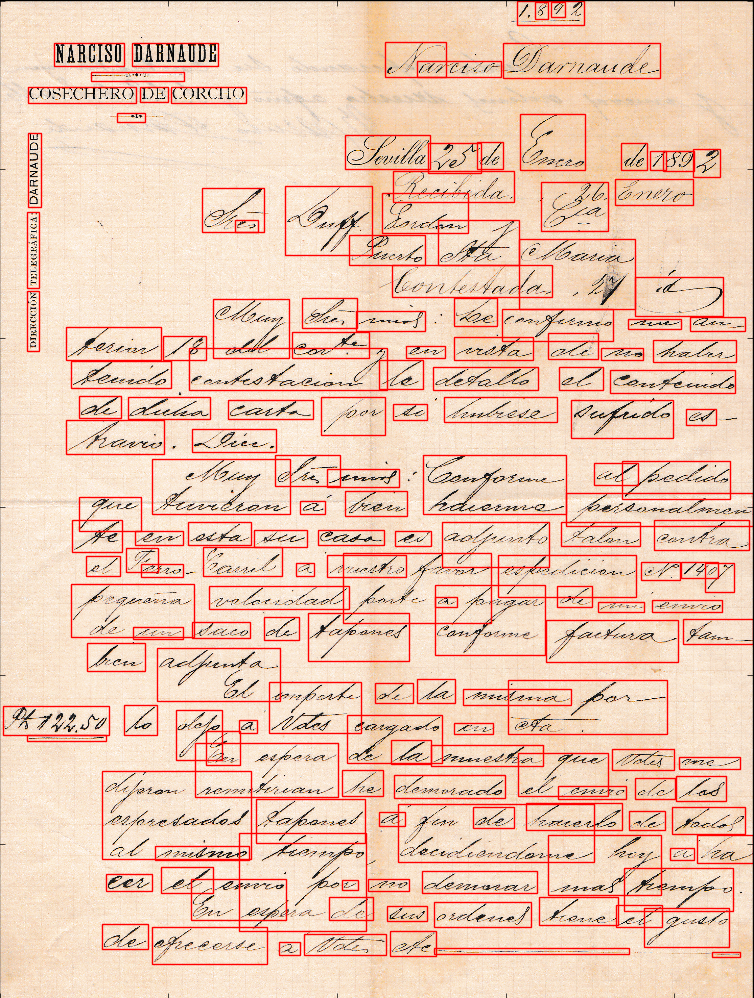 1.892
NARCISO DARNAUDE
Narciso Darnaude
COSECHERO DE CORCHO
DIRECCIÓN TELEGRÁFICA: DARNAUDE
Sevilla 25 de Enero de 1892
Recibida 26 Enero
Sres Duff Gordon y Cia
Puerto Sta Maria
Contestada 27 id
Muy Sres mios: Les confirmo mi an
terior 18 del corte y en vista de no haber
tenido contestacion le detallo el contenido
de dicha carta por si hubiese sufrido es-
travio. Dice.
Muy Sres mios: Conforme al pedido
que tuvieron á bien hacerme personalmen
te en esta su casa es adjunto talon contra.
el Ferro-Carril a vuestro favor espedicion No. 1407
pequeña velocidad porte a pagar de mi envio
de un saco de tapones conforme factura tam-
bien adjunta
El importe de la misma por-
Pts 122.50 lo dejo a Vdes cargado en cta.
En espera de la muestra que Vdes me
dijeron remitirian he demorado el envio de los
espresados tapones á fin de hacerlo de todos
al mismo tiempo, decidiendome hoy a ha
cer el envio por no demorar mas tiempo.
En espera de sus ordenes tiene el gusto
de ofrecerse a Vdes etc